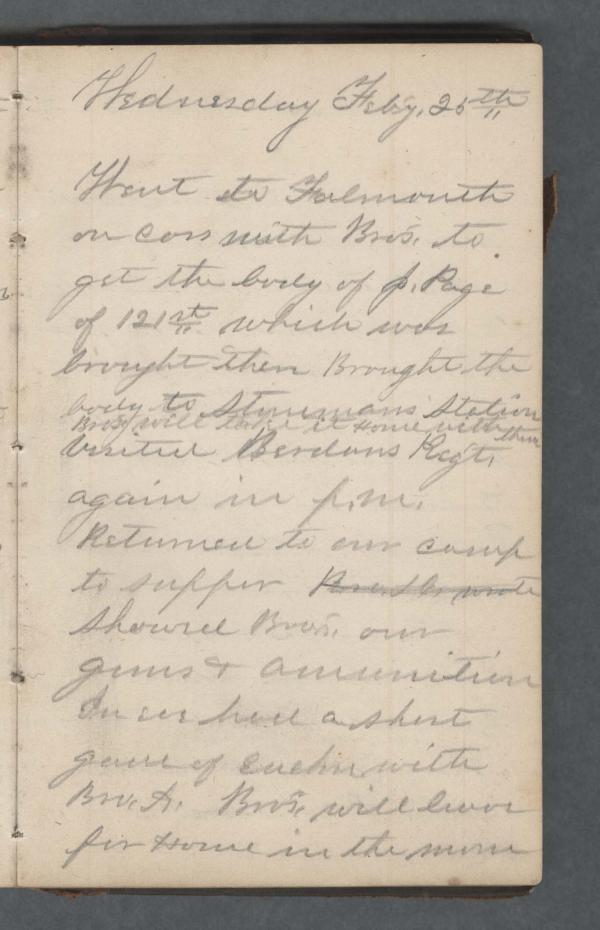 Wednesday Feby. 25th
Went to Falmouth
on cars with Bros. to
get the body of J. Page
of 121st which was
brought then Brought the
body to Stonemans Station
Bros. will take it Home with them
Visited Berdans Regt.
again in p.m.
Returned to our camp
to supper
Showed Bros. our
guns & amunition
In eve had a short
game of Euchre with
Bro. A. Bros. will leave
for Home in the morn